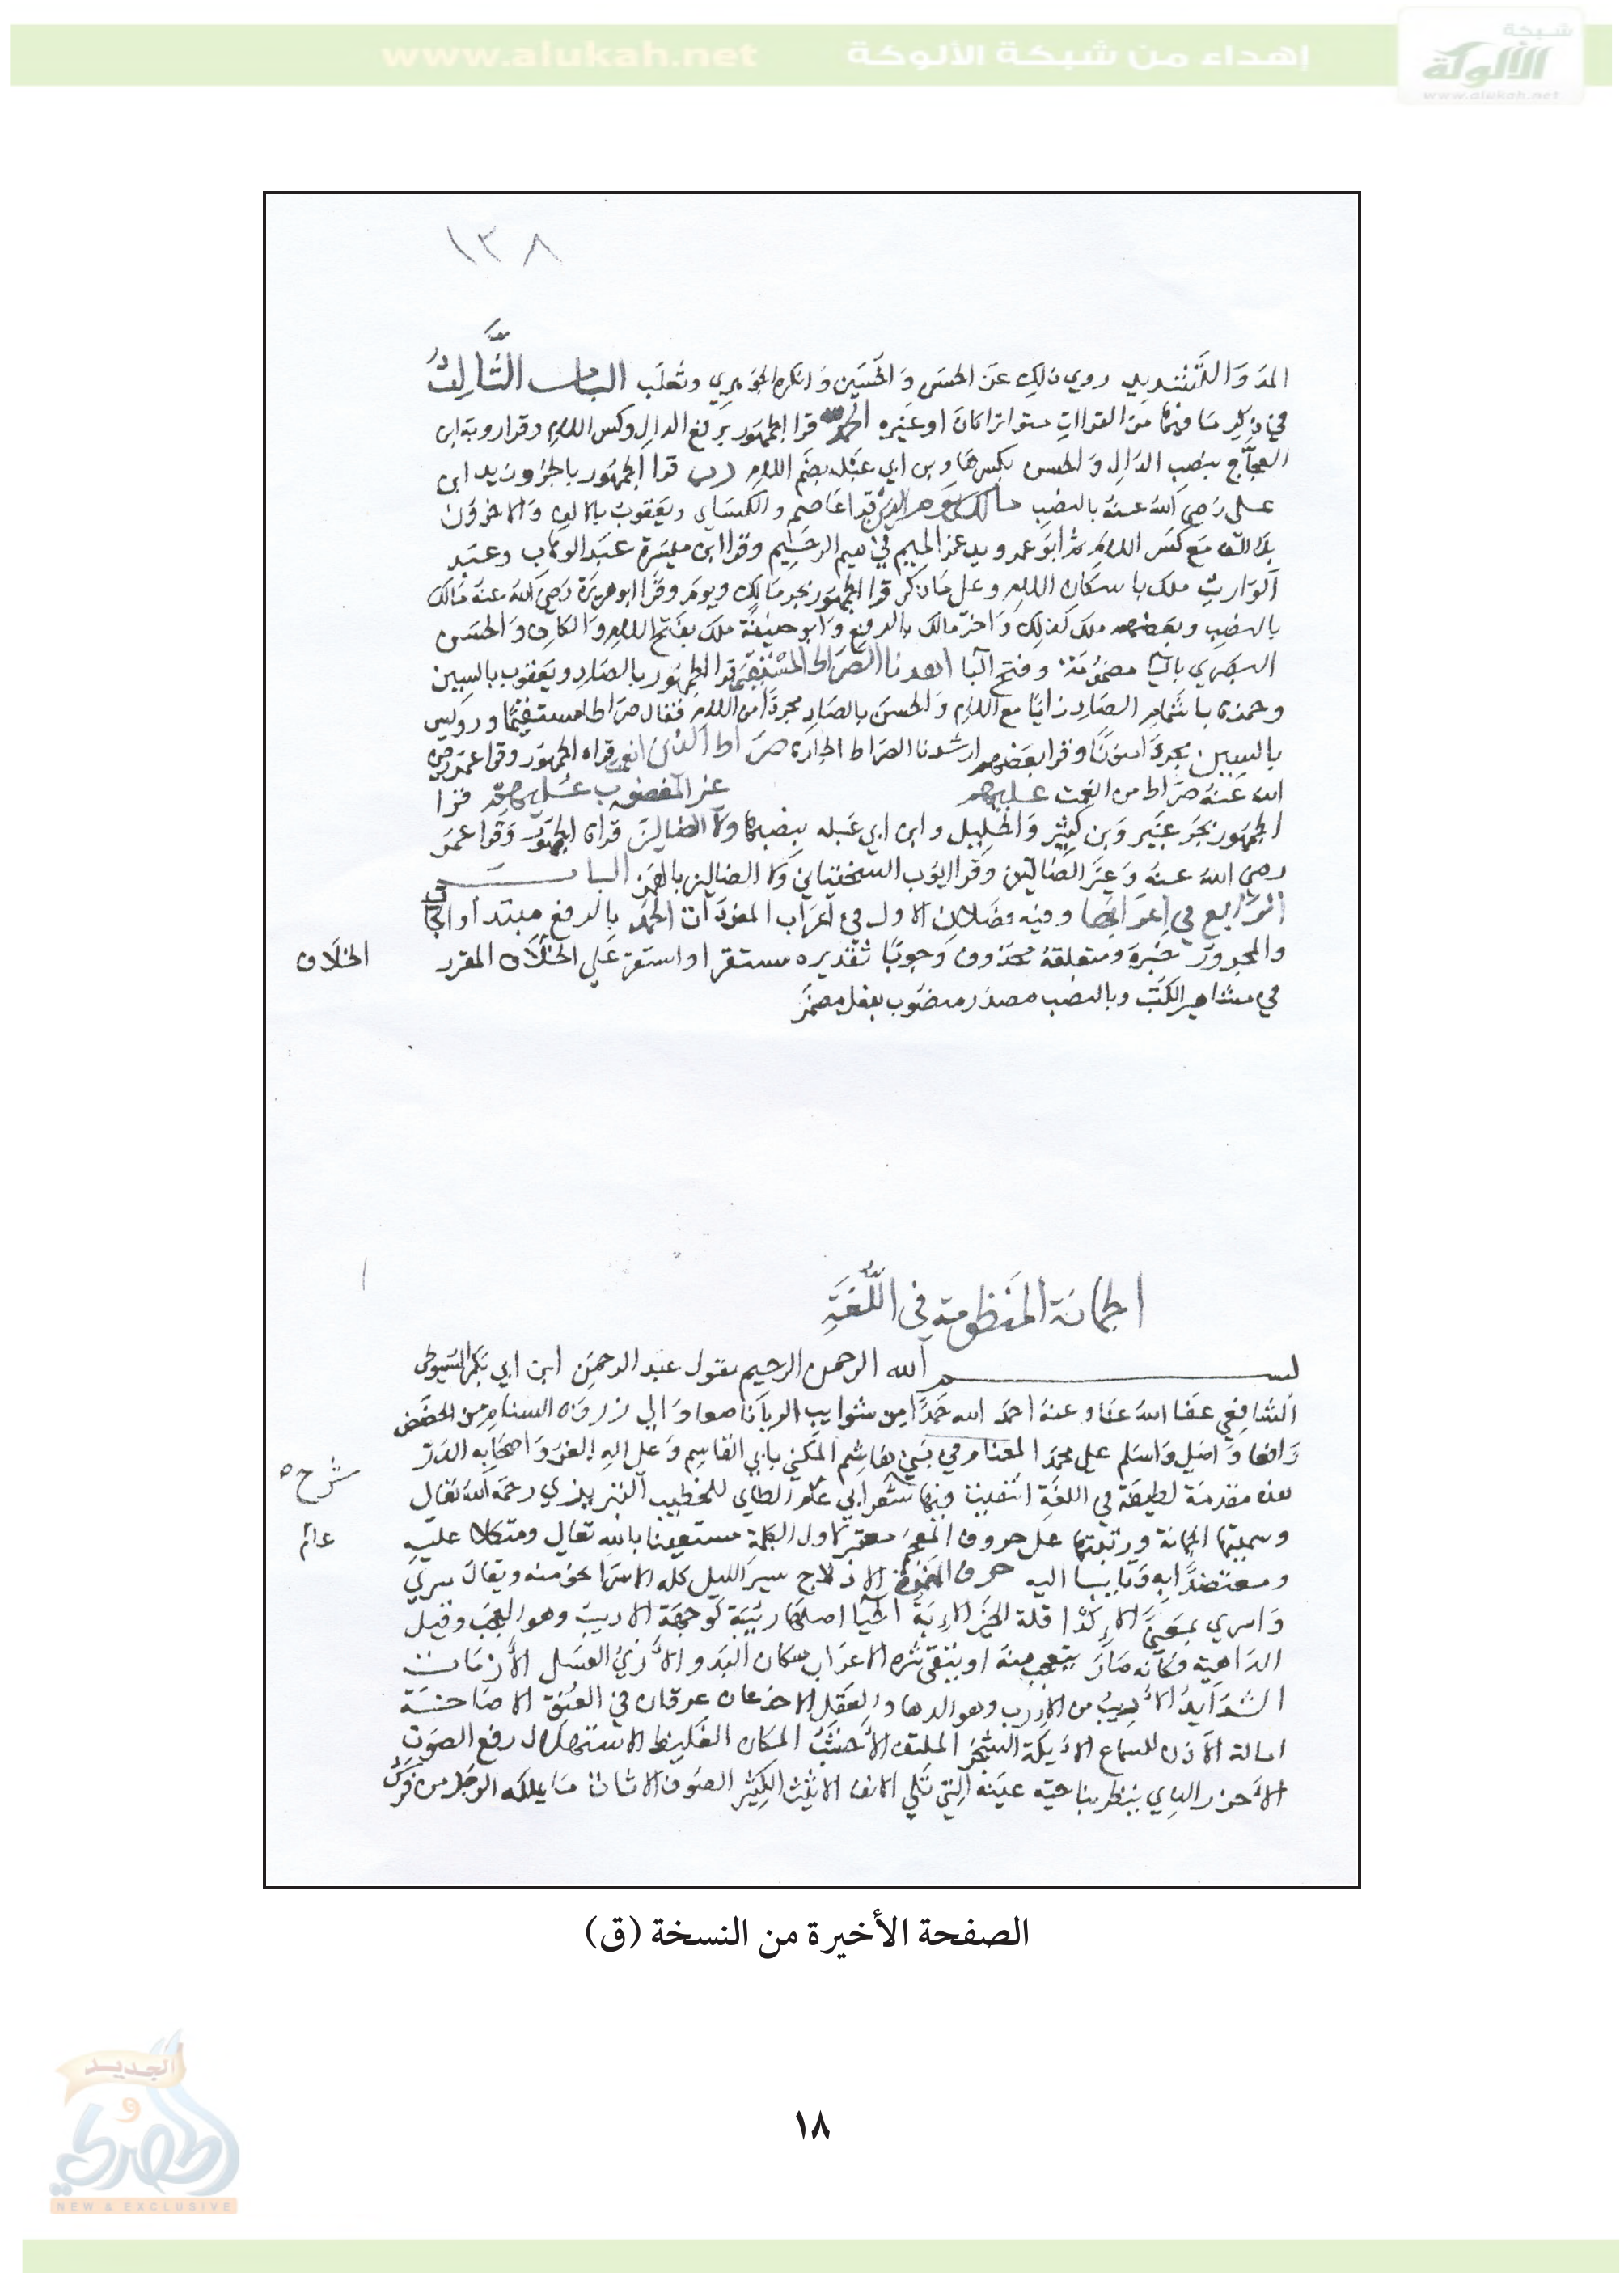 شبكة
الألوكة
www.alukah.net
إهداء من شبكة الألوكة www.alukah.net
١٣٨
المد والتشديد روي ذلك عن الحسن والحسين وانكره الجوهري وثعلب الباب الثالث
في ذكر ما فيها من القراات متواترا كان او غيره الحمد لله قرا الجمهور برفع الدال وكسر اللام وقرا روبة ابن
العجاج بنصب الدال والحسن بكسرها وبن ابي عبله بضم اللام رب قرا الجمهور بالجر وزيد ابن
علي رضي الله عنه بالنصب مالك يوم الدين قرا عاصم والكسائي ويعقوب بالالف والاخرون
بلا الف مع كسر اللام ثم ابو عمرو يدغم الميم في ميم الرحيم وقرا ابن ميسرة عبد الوهاب وعبد
الوارث ملك باسكان اللام وعلى ما ذكر قرا الجمهور بجر مالك ويوم وقرا ابو هريرة رضي الله عنه مالك
بالنصب وبعضهم ملك كذلك واخر مالك بالرفع وابو حنيفة ملك بفتح اللام والكاف والحسن
البصري باليا مضمومة وفتح البا اهدنا الصراط المستقيم قرا الجمهور بالصاد ويعقوب بالسين
وحمزه باشمام الصاد زايا مع اللام والحسن بالصاد مجردا من اللام فقال صراطا مستقيما ورويس
بالسين مجردا منونا وقرا بعضهم ارشدنا الصراط الجاده صراط الذين انعمت قراه الجمهور وقرا عمر رضي
الله عنه صراط من انعمت عليهم غير المغضوب عليهم قرا
الجمهور بجر غير وبن كثير والخليل وابن ابي عبله بنصبها ولا الضالين قراه الجمهور وقرا عمر
رضي الله عنه وغير الضالين وقرا ايوب السختياني ولا الضالين بالهمز الباب
الرابع في اعرابها وفيه فصلان الاول في اعراب المفردات الحمد بالرفع مبتدا والجار
والمجرور خبره ومتعلقه محذوف وجوبا تقديره مستقر او استقر علي الخلاف المقرر
الخلاف
في مشاهير الكتب وبالنصب مصدر منصوب بفعل مضمر
الجمانة المنظومة في اللغة
بسم الله الرحمن الرحيم يقول عبد الرحمن ابن ابي بكر السيوطي
الشافعي عفا الله عنا وعنه احمد الله حمدا من شوايب الريا صعاد الي ذروه السنام من الحضض
واصلي واسلم علي محمد في بني هاشم المكني بابي القاسم وعلي اله الغر واصحابه الدرر
هذه مقدمة لطيفة في اللغة فيها شعر ابي الطاي للخطيب التبريزي رحمه الله تعالي
شرح
وسميتها الجمانة ورتبتها علي حروف المعجم معتبرا اول الكلمة مستعينا بالله تعالي ومتكلا عليه
ومعتضدا به اليه حرف الهمزة الادلاج سير الليل كله الاسرا نحو منه ويقال سري
واسري بمعني الاكدا قلة الخير الاربة الحيا الاديب وهو العجب وقيل
الداهية فكانه مار يتعجب منه او يتقي شره الاعراب سكان البدو الاري العسل الازمات
الشدايد الاريب من الارب وهو الدها والعقل الاخدعان عرقان في العنق الاصاخة
امالة الاذن للسماع الايكة الشجر الملتف الاخشب المكان الغليظ الاستهلال رفع الصوت
الاخزر الذي ينظر بناحية عينه التي تلي الانف الاثيث الكثير الصوف الاثاث ما يملكه الرجل من
الصفحة الأخيرة من النسخة (ق)
١٨
الجديد
و
الحصري
NEW & EXCLUSIVE